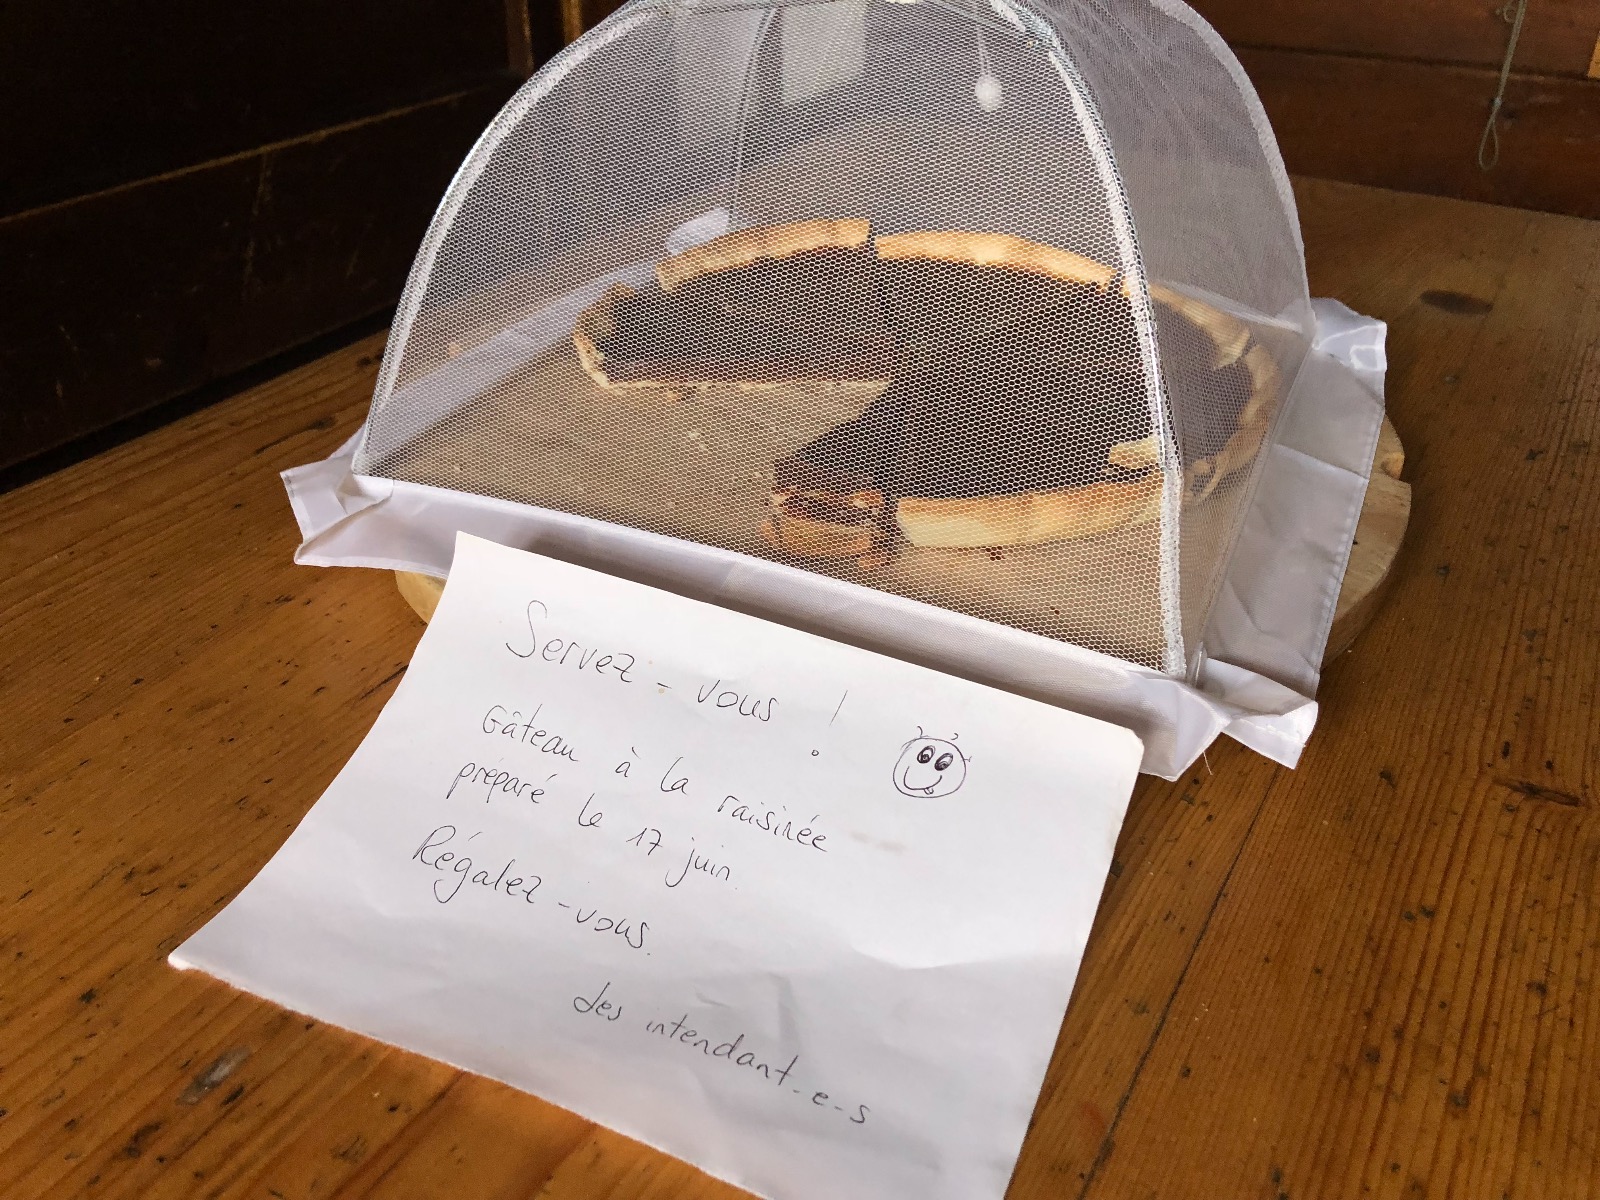 Servez-vous !
Gâteau à la raisinée
préparé le 17 juin.
Régalez-vous.
des intendant-e-s